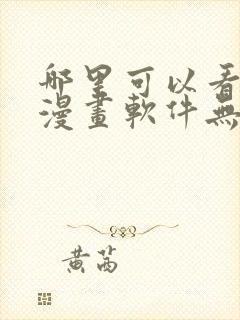 哪里可以看
漫畫軟件無
黄茜